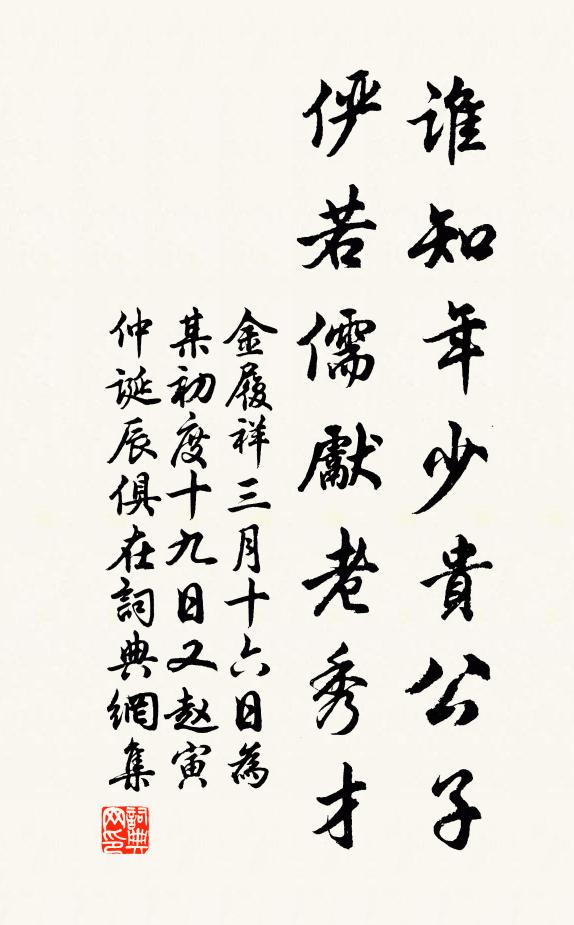 誰知年少貴公子
俨若儒獻老秀才
金履祥三月十六日為
某初度十九日又赵寅
仲誕辰俱在詞典網集
詞典
网印